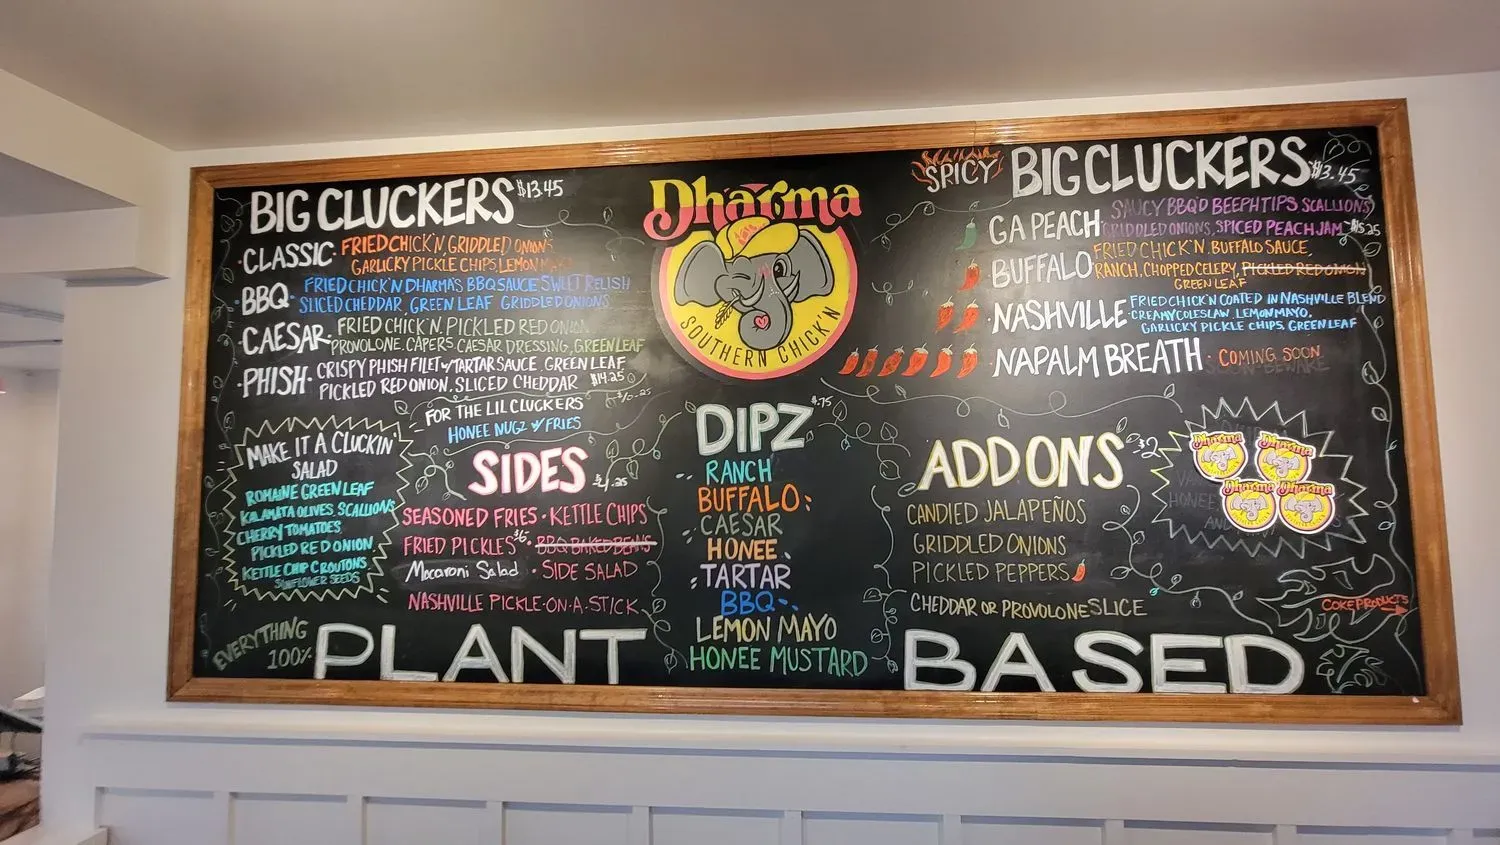 BIG CLUCKERS $13.45
·CLASSIC· FRIED CHICK'N, GRIDDLED ONIONS
GARLICKY PICKLE CHIPS, LEMON MAYO
·BBQ· FRIED CHICK'N DHARMA'S BBQ SAUCE SWEET RELISH
SLICED CHEDDAR, GREEN LEAF GRIDDLED ONIONS
·CAESAR· FRIED CHICK'N, PICKLED RED ONION
PROVOLONE, CAPERS CAESAR DRESSING, GREEN LEAF
·PHISH· CRISPY PHISH FILET w/ TARTAR SAUCE, GREEN LEAF
PICKLED RED ONION, SLICED CHEDDAR $14.25
FOR THE LIL CLUCKERS $10.25
HONEE NUGZ w/ FRIES
MAKE IT A CLUCKIN'
SALAD
ROMAINE GREEN LEAF
KALAMATA OLIVES, SCALLIONS
CHERRY TOMATOES
PICKLED RED ONION,
KETTLE CHIP CROUTONS
SUNFLOWER SEEDS
SIDES $4.25
SEASONED FRIES · KETTLE CHIPS
FRIED PICKLES $6 · BBQ BAKED BEANS
Macaroni Salad · SIDE SALAD
NASHVILLE PICKLE-ON-A-STICK
Dharma
SOUTHERN CHICK'N
DIPZ $.75
RANCH
BUFFALO
CAESAR
HONEE
TARTAR
BBQ
LEMON MAYO
HONEE MUSTARD
SPICY BIG CLUCKERS $13.45
·GA PEACH· SAUCY BBQ'D BEEPH TIPS, SCALLIONS
GRIDDLED ONIONS, SPICED PEACH JAM $15.25
·BUFFALO· FRIED CHICK'N, BUFFALO SAUCE,
RANCH, CHOPPED CELERY, PICKLED RED ONION
GREEN LEAF
·NASHVILLE· FRIED CHICK'N COATED IN NASHVILLE BLEND
CREAMY COLESLAW, LEMON MAYO,
GARLICKY PICKLE CHIPS, GREEN LEAF
·NAPALM BREATH· COMING SOON
ADD ONS $2
CANDIED JALAPEÑOS
GRIDDLED ONIONS
PICKLED PEPPERS
CHEDDAR OR PROVOLONE SLICE
Dharma
Dharma
Dharma
Dharma
COKE PRODUCTS
EVERYTHING
100%
PLANT BASED